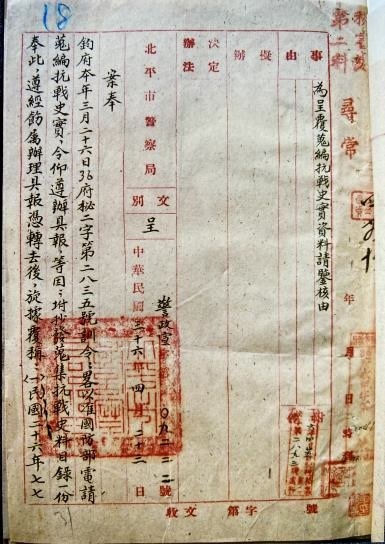 18
秘書處
第二科
尋常
年
月
日
時
號
字
第
文
收
附件
事由
為呈覆蒐編抗戰史實資料請鑒核由
擬辦
決定辦法
北平市警察局
文別
呈
警政宣
字第〇九二二二號
中華民國三十六年四月二十二日
案奉
鈞府本年三月二十六日36府秘二字第二八三五號訓令：畧以准國防部電請
蒐編抗戰史實，令仰遵辦具報，等因；坿抄發蒐集抗戰史料目錄一份
奉此，遵經飭屬辦理具報憑轉去後，旋據覆稱：(一)民國二十六年七七